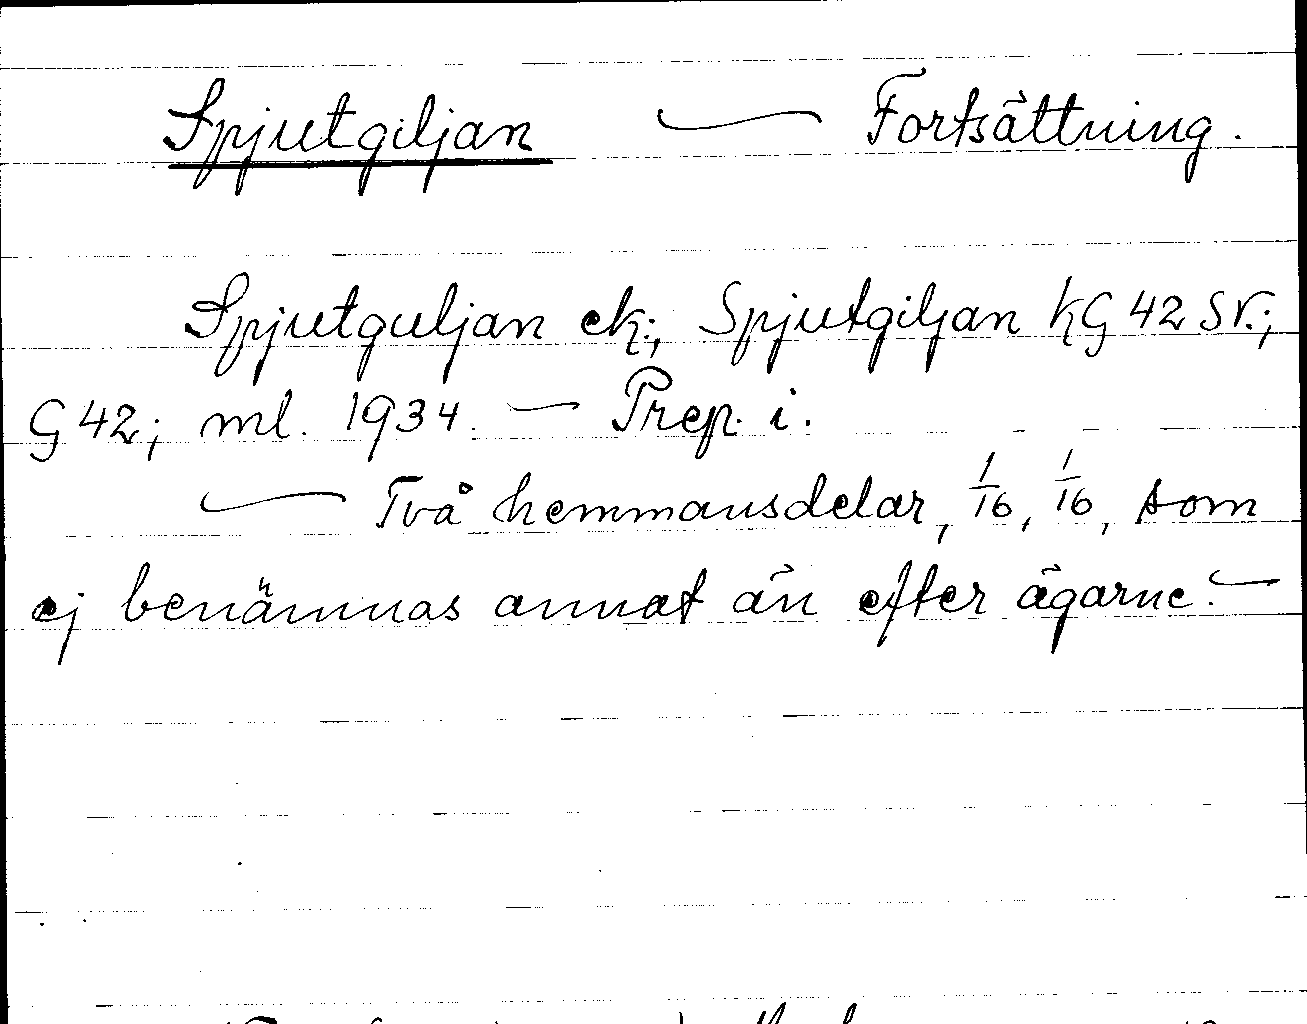 Spjutgiljan — Fortsättning.
Spjutguljan ek.; Spjutgiljan kG 42 SV.;
G 42; ml. 1934. — Prep. i.
— Två hemmansdelar, 1/16, 1/16, som
ej benämnas annat än efter ägarne. —